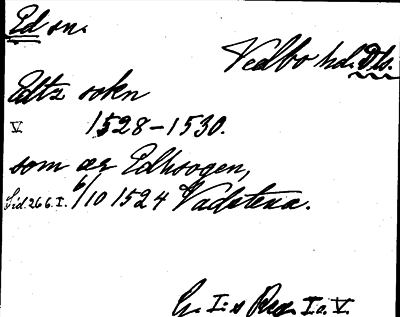 Ed sn.
Vedbo hd. Dls.
Edtz sokn
V 1528-1530.
som ær Edhsogen,
Sid. 266. I. 6/10 1524 Vadstena.
G. I:s Reg. I o. V.